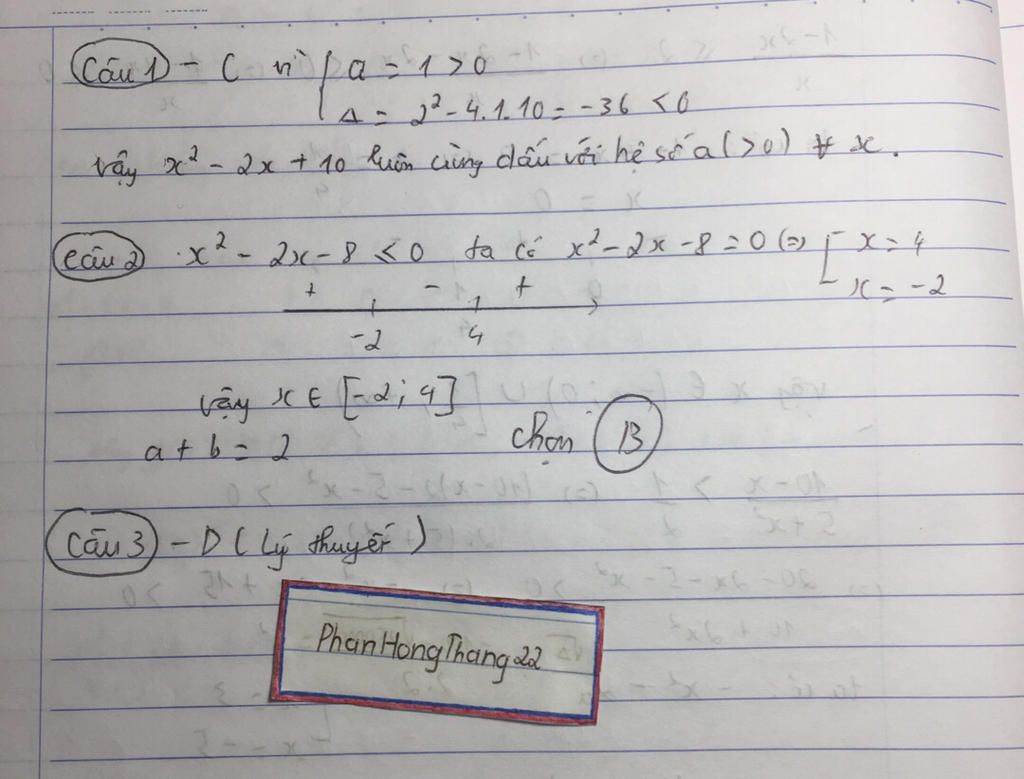 Câu 1 - C vì { a = 1 > 0
Δ = 2² - 4.1.10 = -36 < 0
vậy x² - 2x + 10 luôn cùng dấu với hệ số a (>0) ∀ x.
Câu 2 . x² - 2x - 8 ≤ 0 ta có x² - 2x - 8 = 0 (=) [ x = 4
x = -2
+ - +
-2 4
vậy x ∈ [-2; 4]
a + b = 2 chọn B
Câu 3 - D (Lý thuyết)
PhanHongThang22